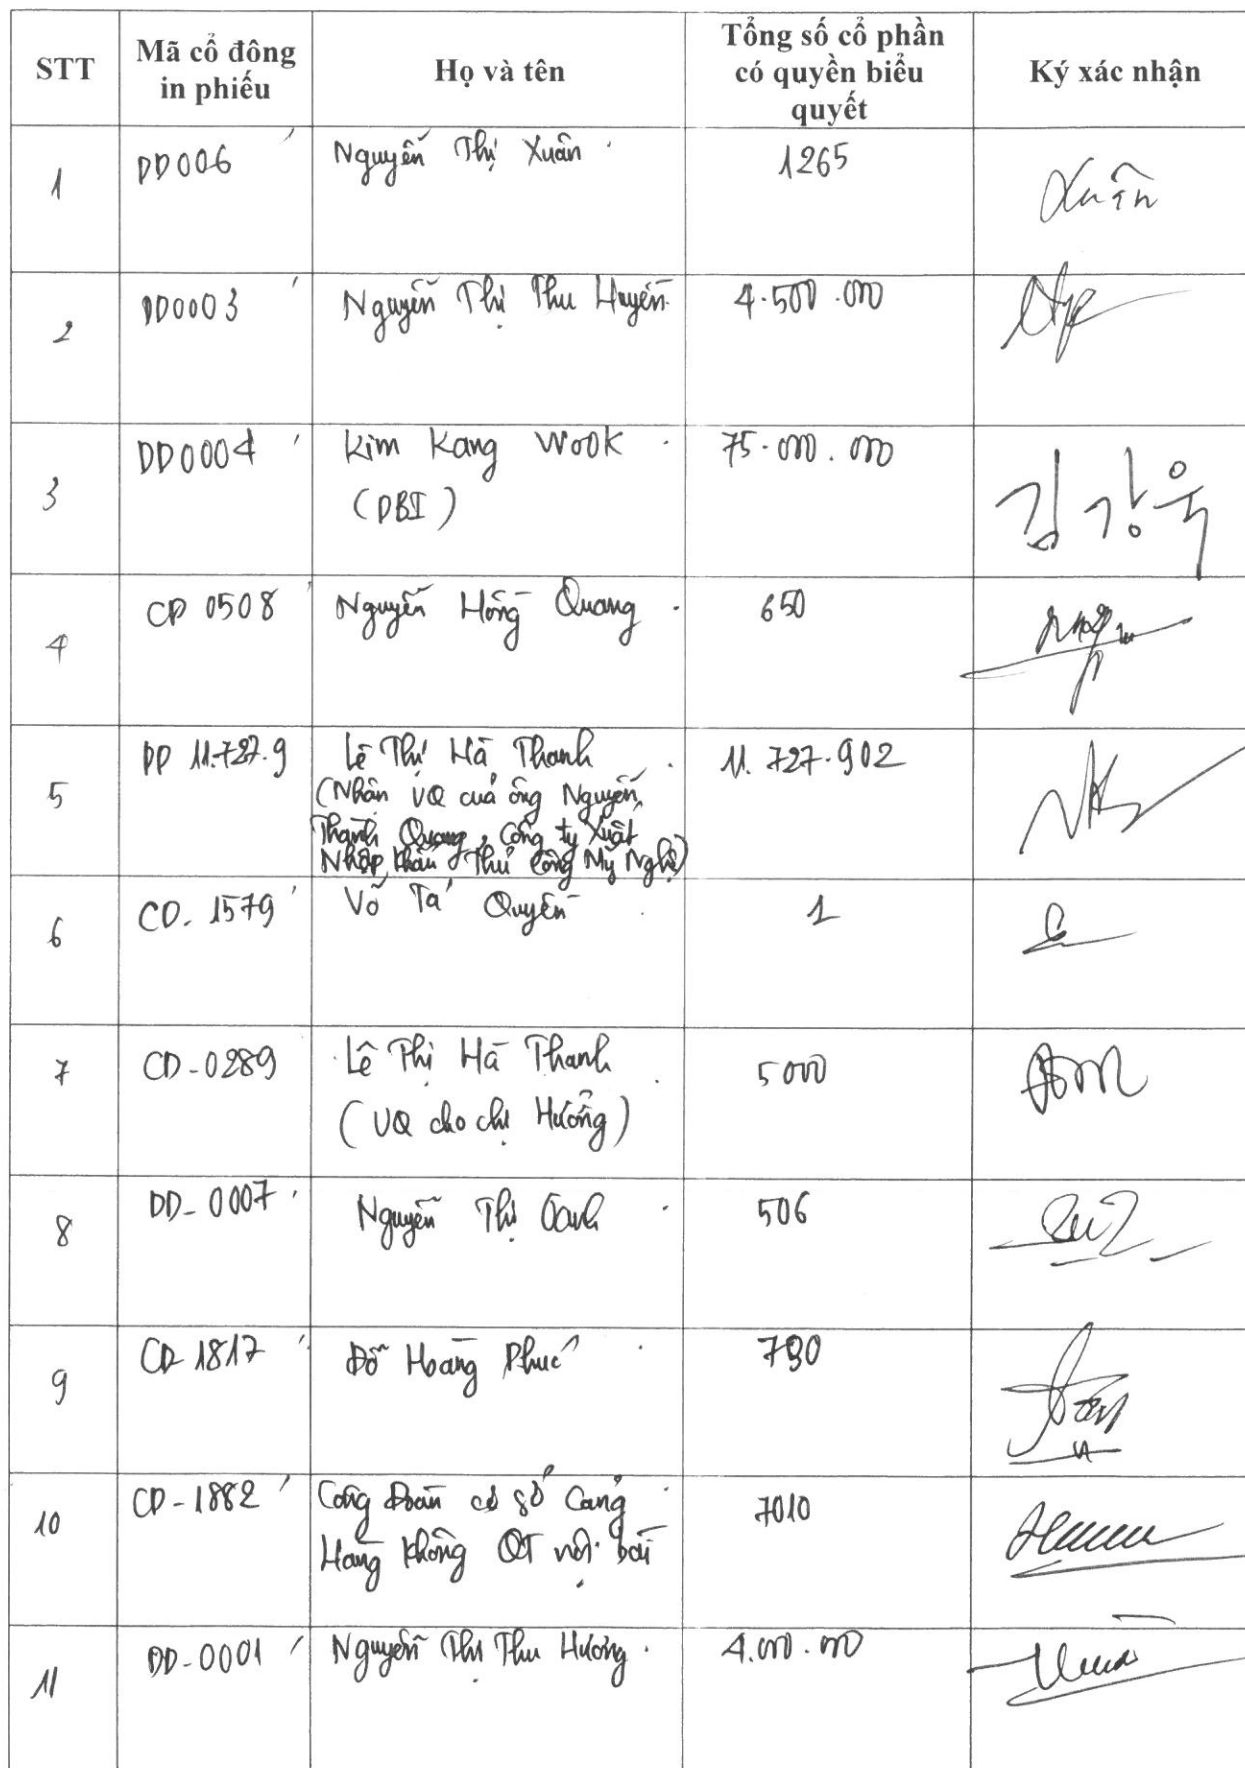 STT
Mã cổ đông
in phiếu
Họ và tên
Tổng số cổ phần
có quyền biểu
quyết
Ký xác nhận
1
DD006
Nguyễn Thị Xuân
1265
Xuân
2
DD0003
Nguyễn Thị Thu Huyền
4.500.000
3
DD0004
Kim Kang Wook
(DBI)
75.000.000
김강욱
4
CD 0508
Nguyễn Hồng Quang
650
5
DD 11.727.9
Lê Thị Hà Thanh
(Nhận UQ của ông Nguyễn
Thanh Quang, Công ty Xuất
Nhập khẩu Thủ Công Mỹ Nghệ)
11.727.902
6
CD. 1579
Võ Tá Quyền
1
7
CD-0289
Lê Thị Hà Thanh
(UQ cho chị Hưởng)
5000
8
DD-0007
Nguyễn Thị Oanh
506
9
CD-1817
Đỗ Hoàng Phúc
790
10
CD-1882
Công Đoàn cơ sở Cảng
Hàng không QT nội bài
7010
11
DD-0001
Nguyễn Thị Thu Hương
4.000.000